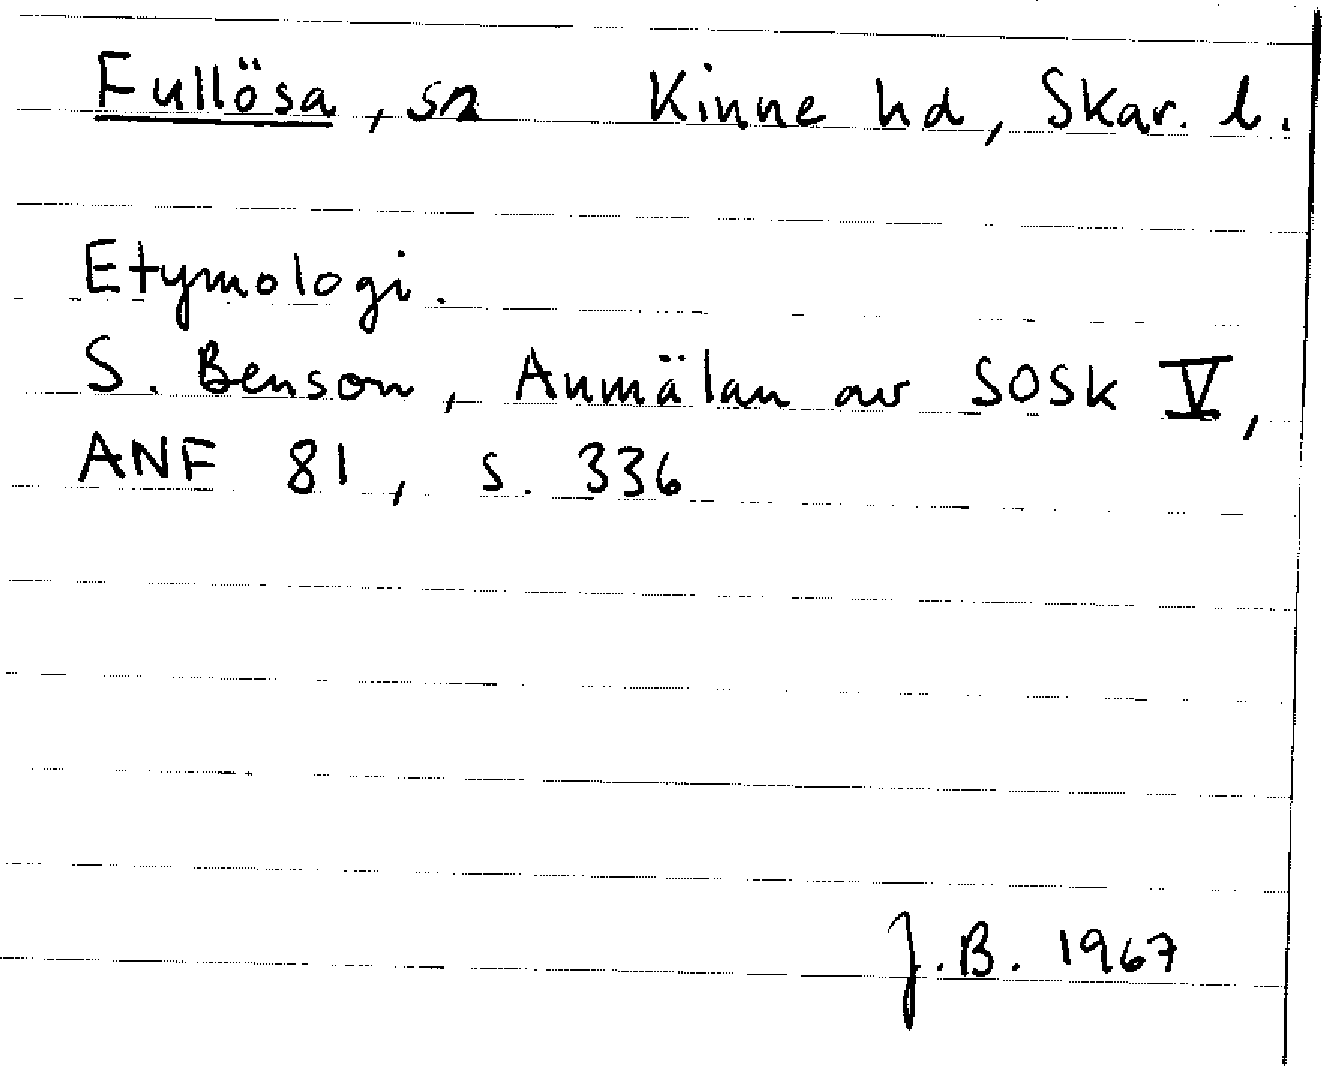 Fullösa, sn Kinne hd, Skar. l.
Etymologi.
S. Benson, Anmälan av SOSk V,
ANF 81, s. 336
J.B. 1967